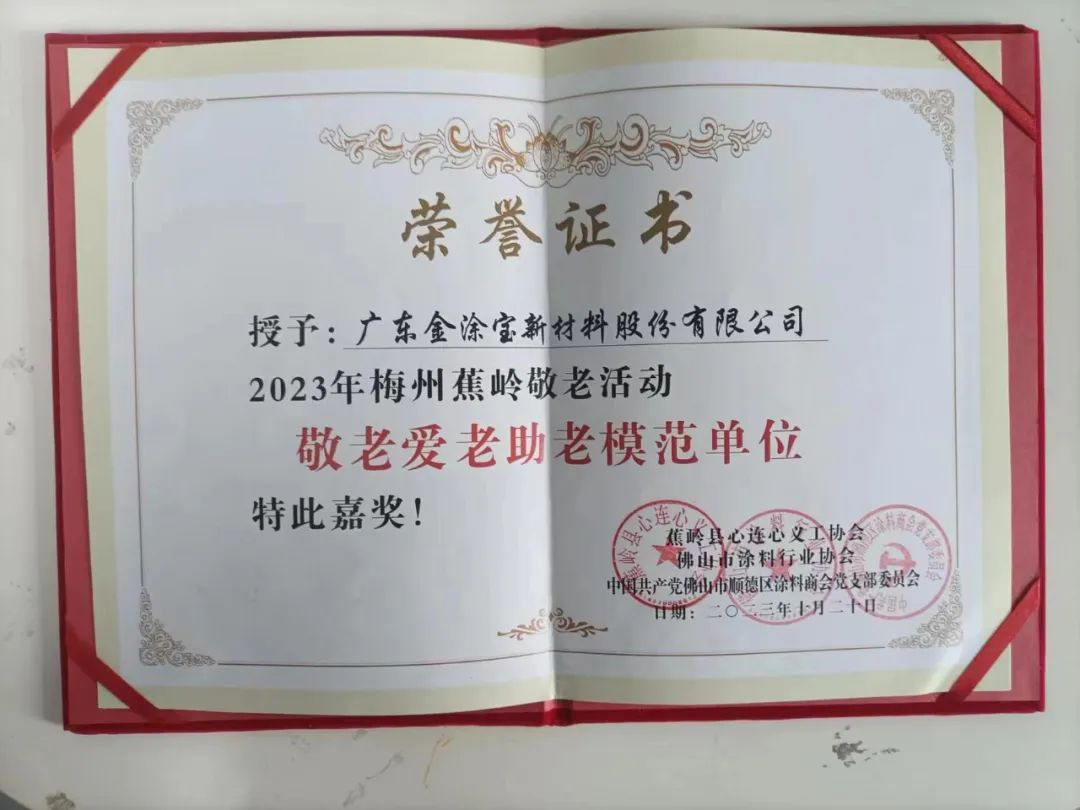 荣誉证书
授予：广东金涂宝新材料股份有限公司
2023年梅州蕉岭敬老活动
敬老爱老助老模范单位
特此嘉奖！
蕉岭县心连心义工协会
佛山市涂料行业协会
中国共产党佛山市顺德区涂料商会党支部委员会
日期：二〇二三年十月二十日